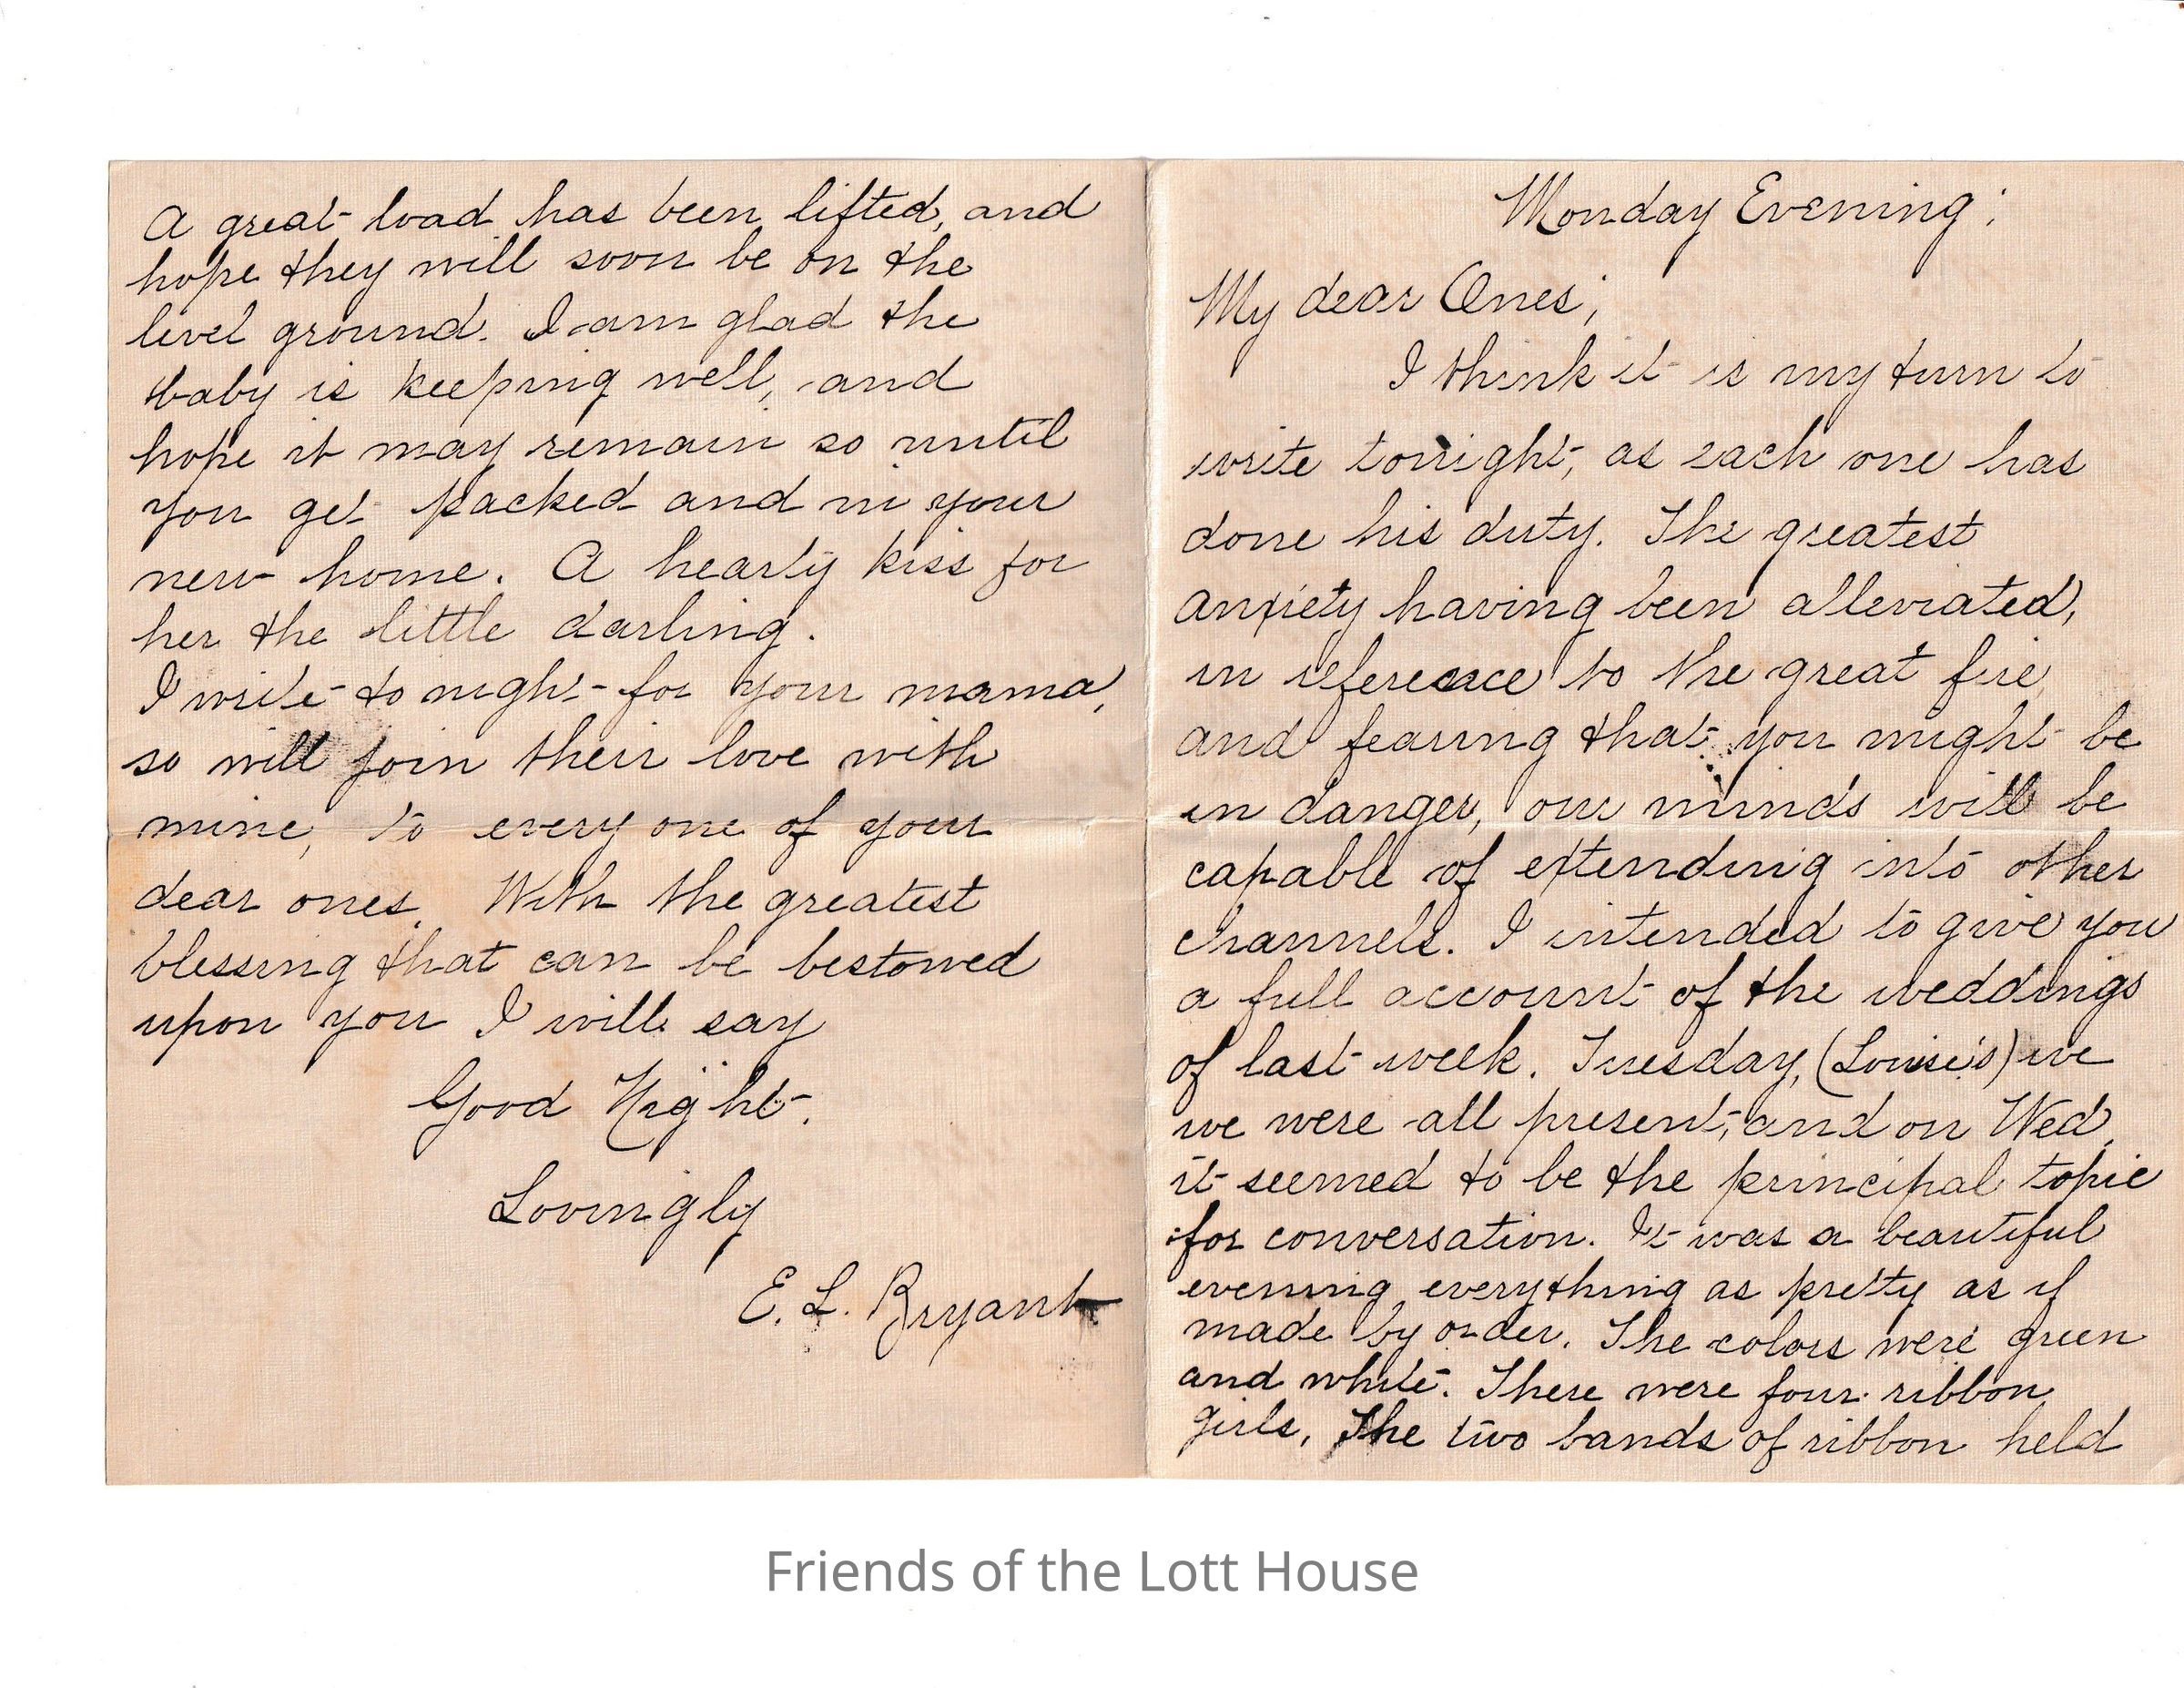 A great load has been lifted, and
hope they will soon be on the
level ground. I am glad the
baby is keeping well, and
hope it may remain so until
you get packed and in your
new home. A hearty kiss for
her the little darling.
I write to night for your mama,
so will join their love with
mine, to every one of your
dear ones. With the greatest
blessing that can be bestowed
upon you I will say
Good Night.
Lovingly
E. L. Bryant
Monday Evening;
My dear Ones;
I think it is my turn to
write tonight, as each one has
done his duty. The greatest
anxiety having been alleviated,
in reference to the great fire,
and fearing that you might be
in danger, our minds will be
capable of extending into other
channels. I intended to give you
a full account of the weddings
of last week. Tuesday, (Louise's) we
we were all present, and on Wed.
it seemed to be the principal topic
for conversation. It was a beautiful
evening everything as pretty as if
made by order. The colors were green
and white. There were four ribbon
girls, The two bands of ribbon held
Friends of the Lott House